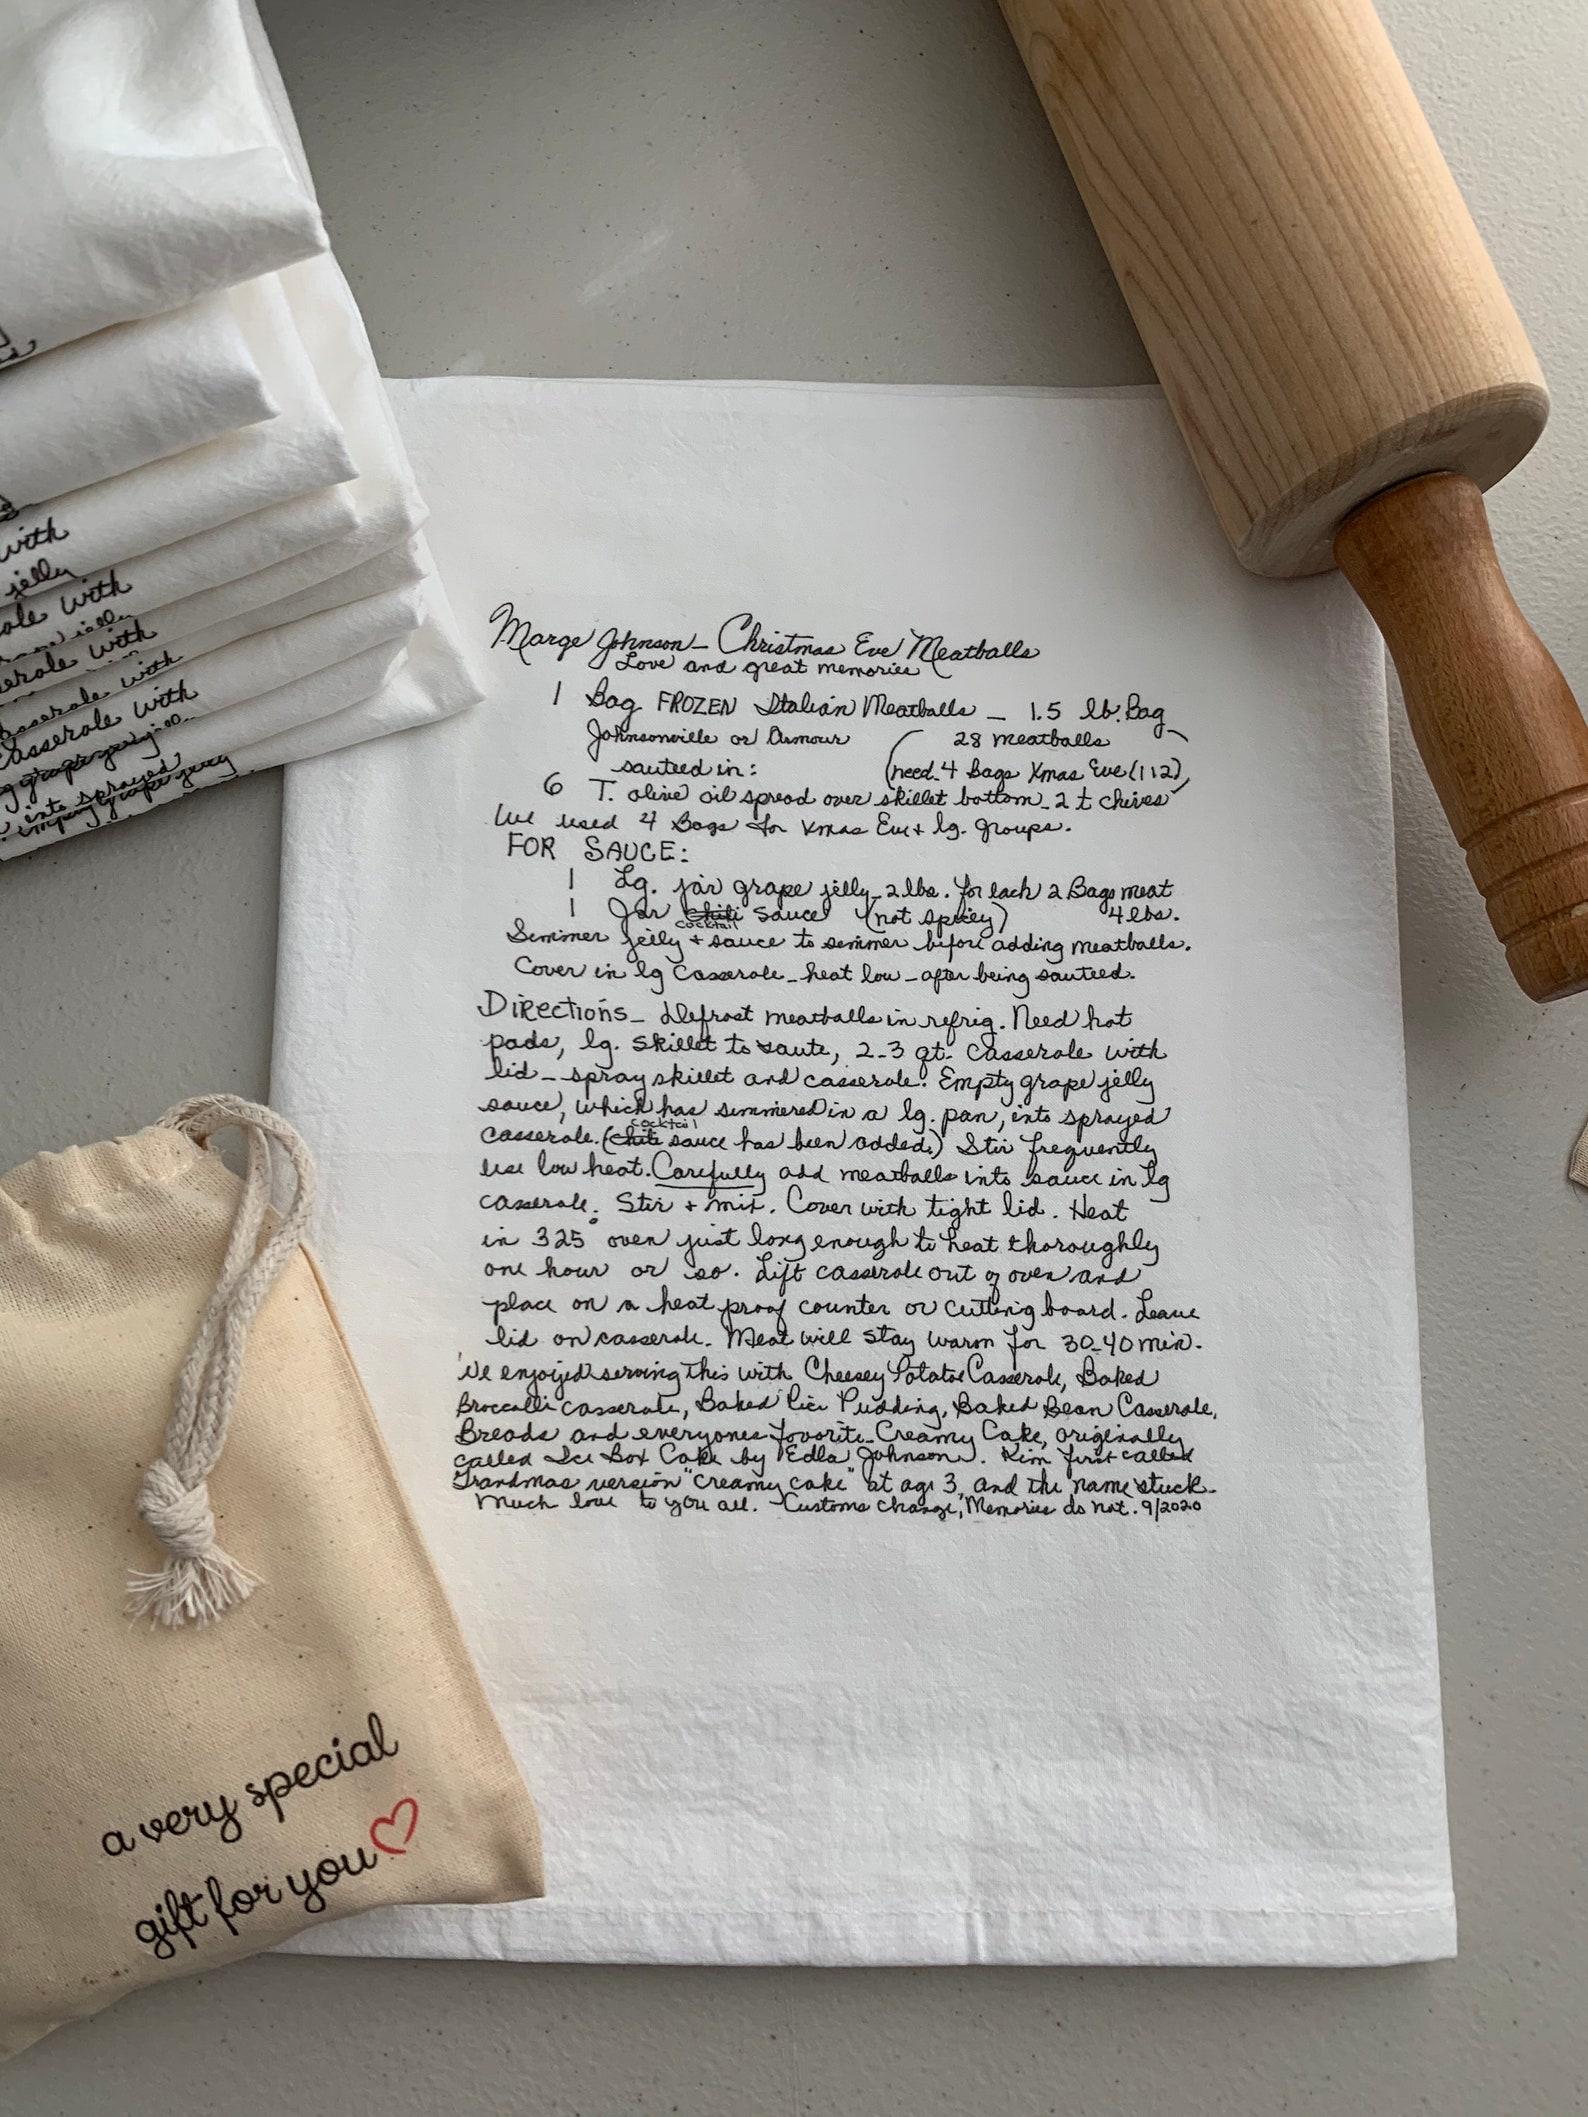 Marge Johnson - Christmas Eve Meatballs
Love and great memories
1 Bag FROZEN Italian Meatballs - 1.5 lb. Bag
Johnsonville or Armour ( 28 meatballs
sauteed in: need 4 Bags Xmas Eve (112) )
6 T. olive oil spread over skillet bottom - 2 t chives
We used 4 Bags for Xmas Eve + lg. groups.
FOR SAUCE:
1 Lg. jar grape jelly - 2 lbs. for each 2 Bags meat
1 Jar Chili Sauce (not spicey) 4 lbs.
cocktail
Simmer jelly + sauce to simmer before adding meatballs.
Cover in lg casserole - heat low - after being sauteed.
Directions - Defrost meatballs in refrig. Need hot
pads, lg. skillet to saute, 2-3 qt. casserole with
lid - spray skillet and casserole. Empty grape jelly
sauce, which has simmered in a lg. pan, into sprayed
cocktail
casserole. (Chili sauce has been added.) Stir frequently
use low heat. Carefully add meatballs into sauce in lg
casserole. Stir + mix. Cover with tight lid. Heat
in 325° oven just long enough to heat thoroughly
one hour or so. Lift casserole out of oven and
place on a heat proof counter or cutting board. Leave
lid on casserole. Meat will stay warm for 30-40 min.
We enjoyed serving this with Cheesey Potatoe Casserole, Baked
Broccolli casserole, Baked Rice Pudding, Baked Bean Casserole,
Breads and everyones favorite - Creamy Cake, originally
called Ice Box Cake by Edla Johnson. Kim first called
Grandmas version "creamy cake" at age 3, and the name stuck.
Much love to you all. Customs change, Memories do not. 9/2020
with
jelly
with
with
casserole with
Casserole with
into sprayed
a very special
gift for you